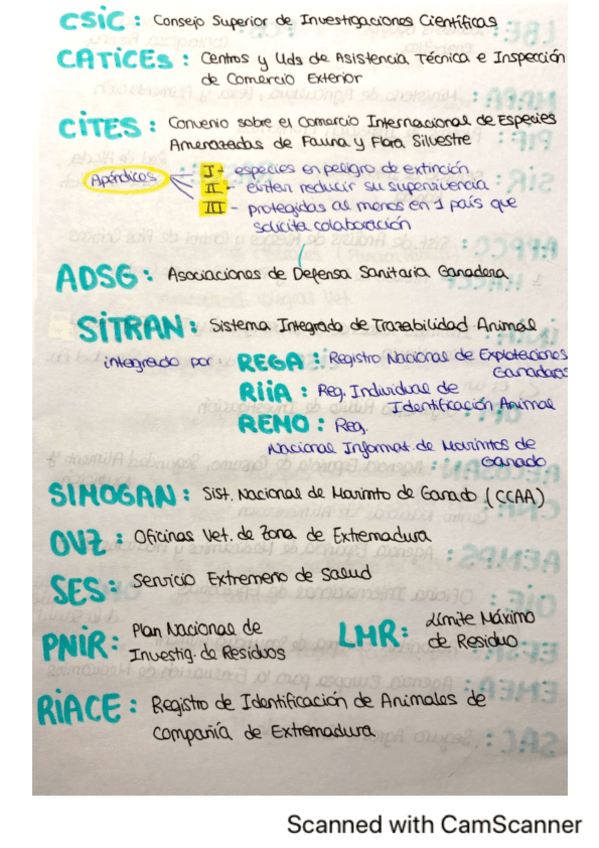 CSIC : Consejo Superior de Investigaciones Científicas
CATICEs : Centros y Uds de Asistencia Técnica e Inspección
de Comercio Exterior
CITES : Convenio sobre el Comercio Internacional de Especies
Amenazadas de Fauna y Flora Silvestre
Apéndices
I - especies en peligro de extinción
II - eviten reducir su supervivencia
III - protegidas al menos en 1 país que
solicita colaboración
ADSG : Asociaciones de Defensa Sanitaria Ganadera
SITRAN : Sistema Integrado de Trazabilidad Animal
integrado por : REGA : Registro Nacional de Explotaciones
Ganaderas
RIIA : Reg. Individual de
Identificación Animal
REMO : Reg.
Nacional Informat. de Movimtos de
Ganado
SIMOGAN : Sist. Nacional de Movimto de Ganado (CCAA)
OVZ : Oficinas Vet. de Zona de Extremadura
SES : Servicio Extremeño de Salud
PNIR : Plan Nacional de
Investig. de Residuos
LMR : Límite Máximo
de Residuo
RIACE : Registro de Identificación de Animales de
Compañía de Extremadura
Scanned with CamScanner